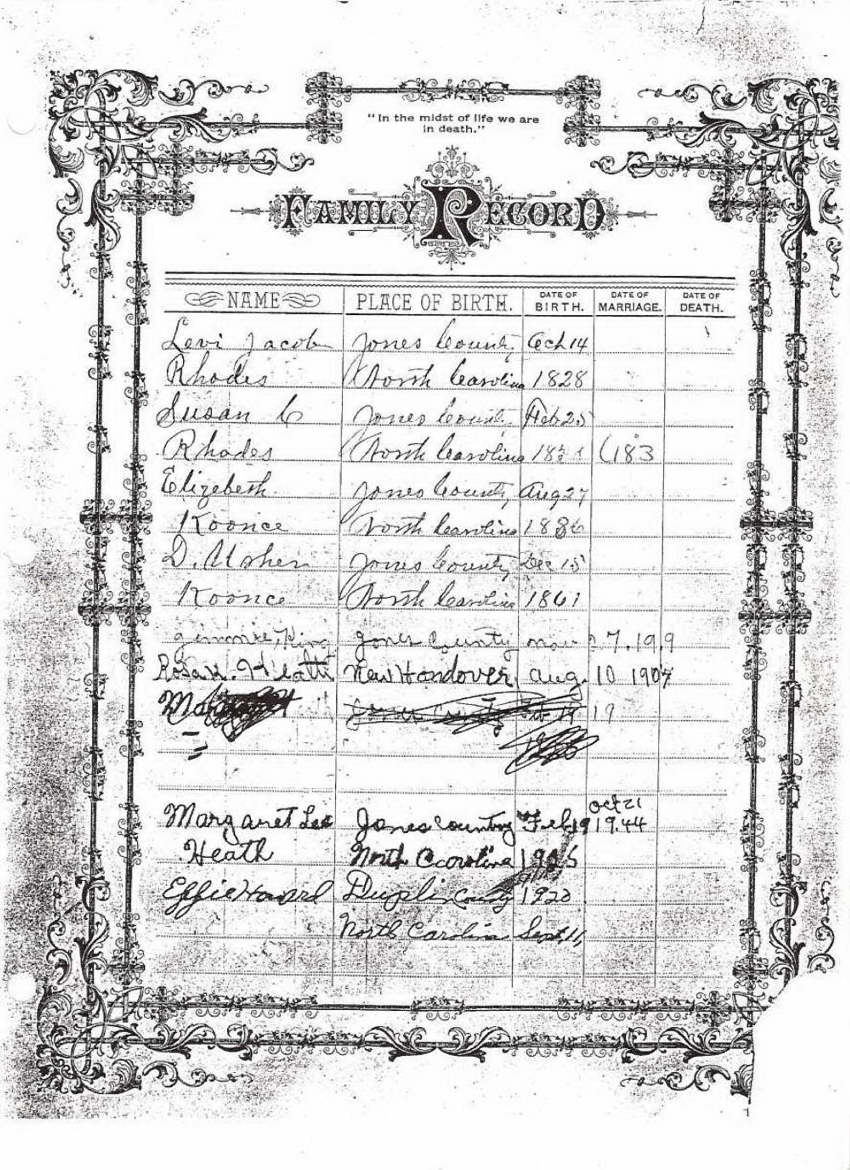 "In the midst of life we are
in death."
FAMILY RECORD
NAME PLACE OF BIRTH. DATE OF BIRTH. DATE OF MARRIAGE. DATE OF DEATH.
Levi Jacob Jones County 14
Rhodes North Carolina 1828
Susan C Jones County Feb 25
Rhodes North Carolina (183
Elizebeth Jones County Aug 27
Koonce North Carolina 1836
D. Usher Jones County Dec 15
Koonce North Carolina 1861
Jones County 7.19
Rosa H. Heath New Handover Aug. 10 1907
19
Oct 21
Margaret Lee Jones County Feb 19 19.44
Heath North Carolina
Effie Howard Duplin County 1920
North Carolina Sept. 11,